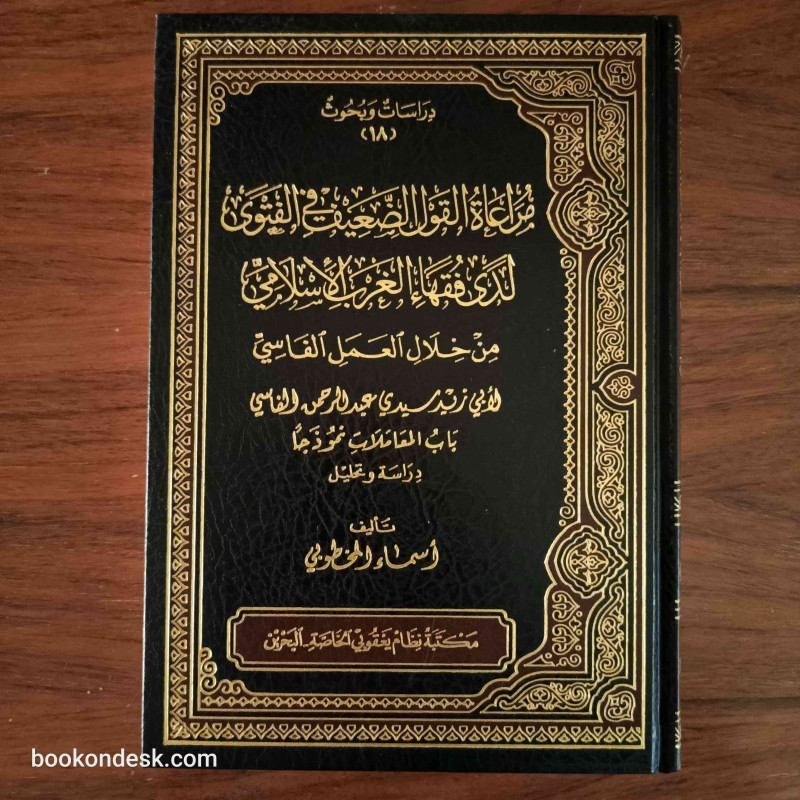 دِرَاسَاتٌ وَبُحُوثٌ
(١٨)
مُرَاعَاةُ القَوْلِ الضَّعِيْفِ فِي الفَتْوَى
لَدَى فُقَهَاءِ الغَرْبِ الإِسْلَامِيِّ
مِنْ خِلَالِ العَمَلِ الفَاسِيِّ
لأبي زيد سيدي عبد الرحمن الفاسي
بَابُ المُعَامَلَاتِ نَمُوْذَجًا
دِرَاسَة وتحليل
تأليف
أسماء المخطوبي
مَكتَبَةُ نِظَام يَعْقُوبي الخَاصَّة - البَحْرَيْن
bookondesk.com